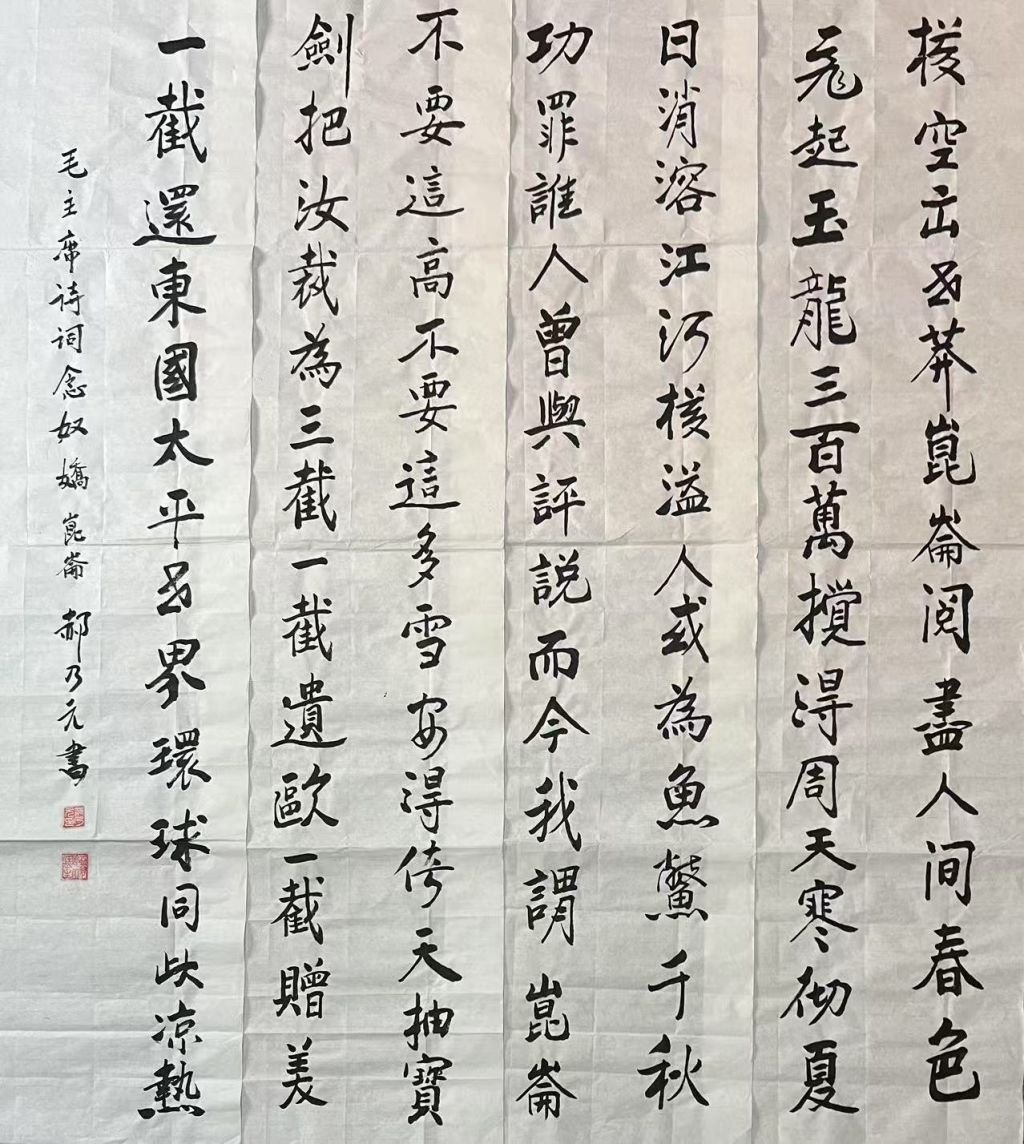 横空出世莽崑崙阅盡人间春色
飛起玉龍三百萬攪得周天寒彻夏
日消溶江河横溢人或為魚鱉千秋
功罪誰人曾與評説而今我謂崑崙
不要這高不要這多雪安得倚天抽寶
劍把汝裁為三截一截遺歐一截贈美
一截還東國太平世界環球同此凉熱
毛主席诗词念奴嬌崑崙 郝乃元書